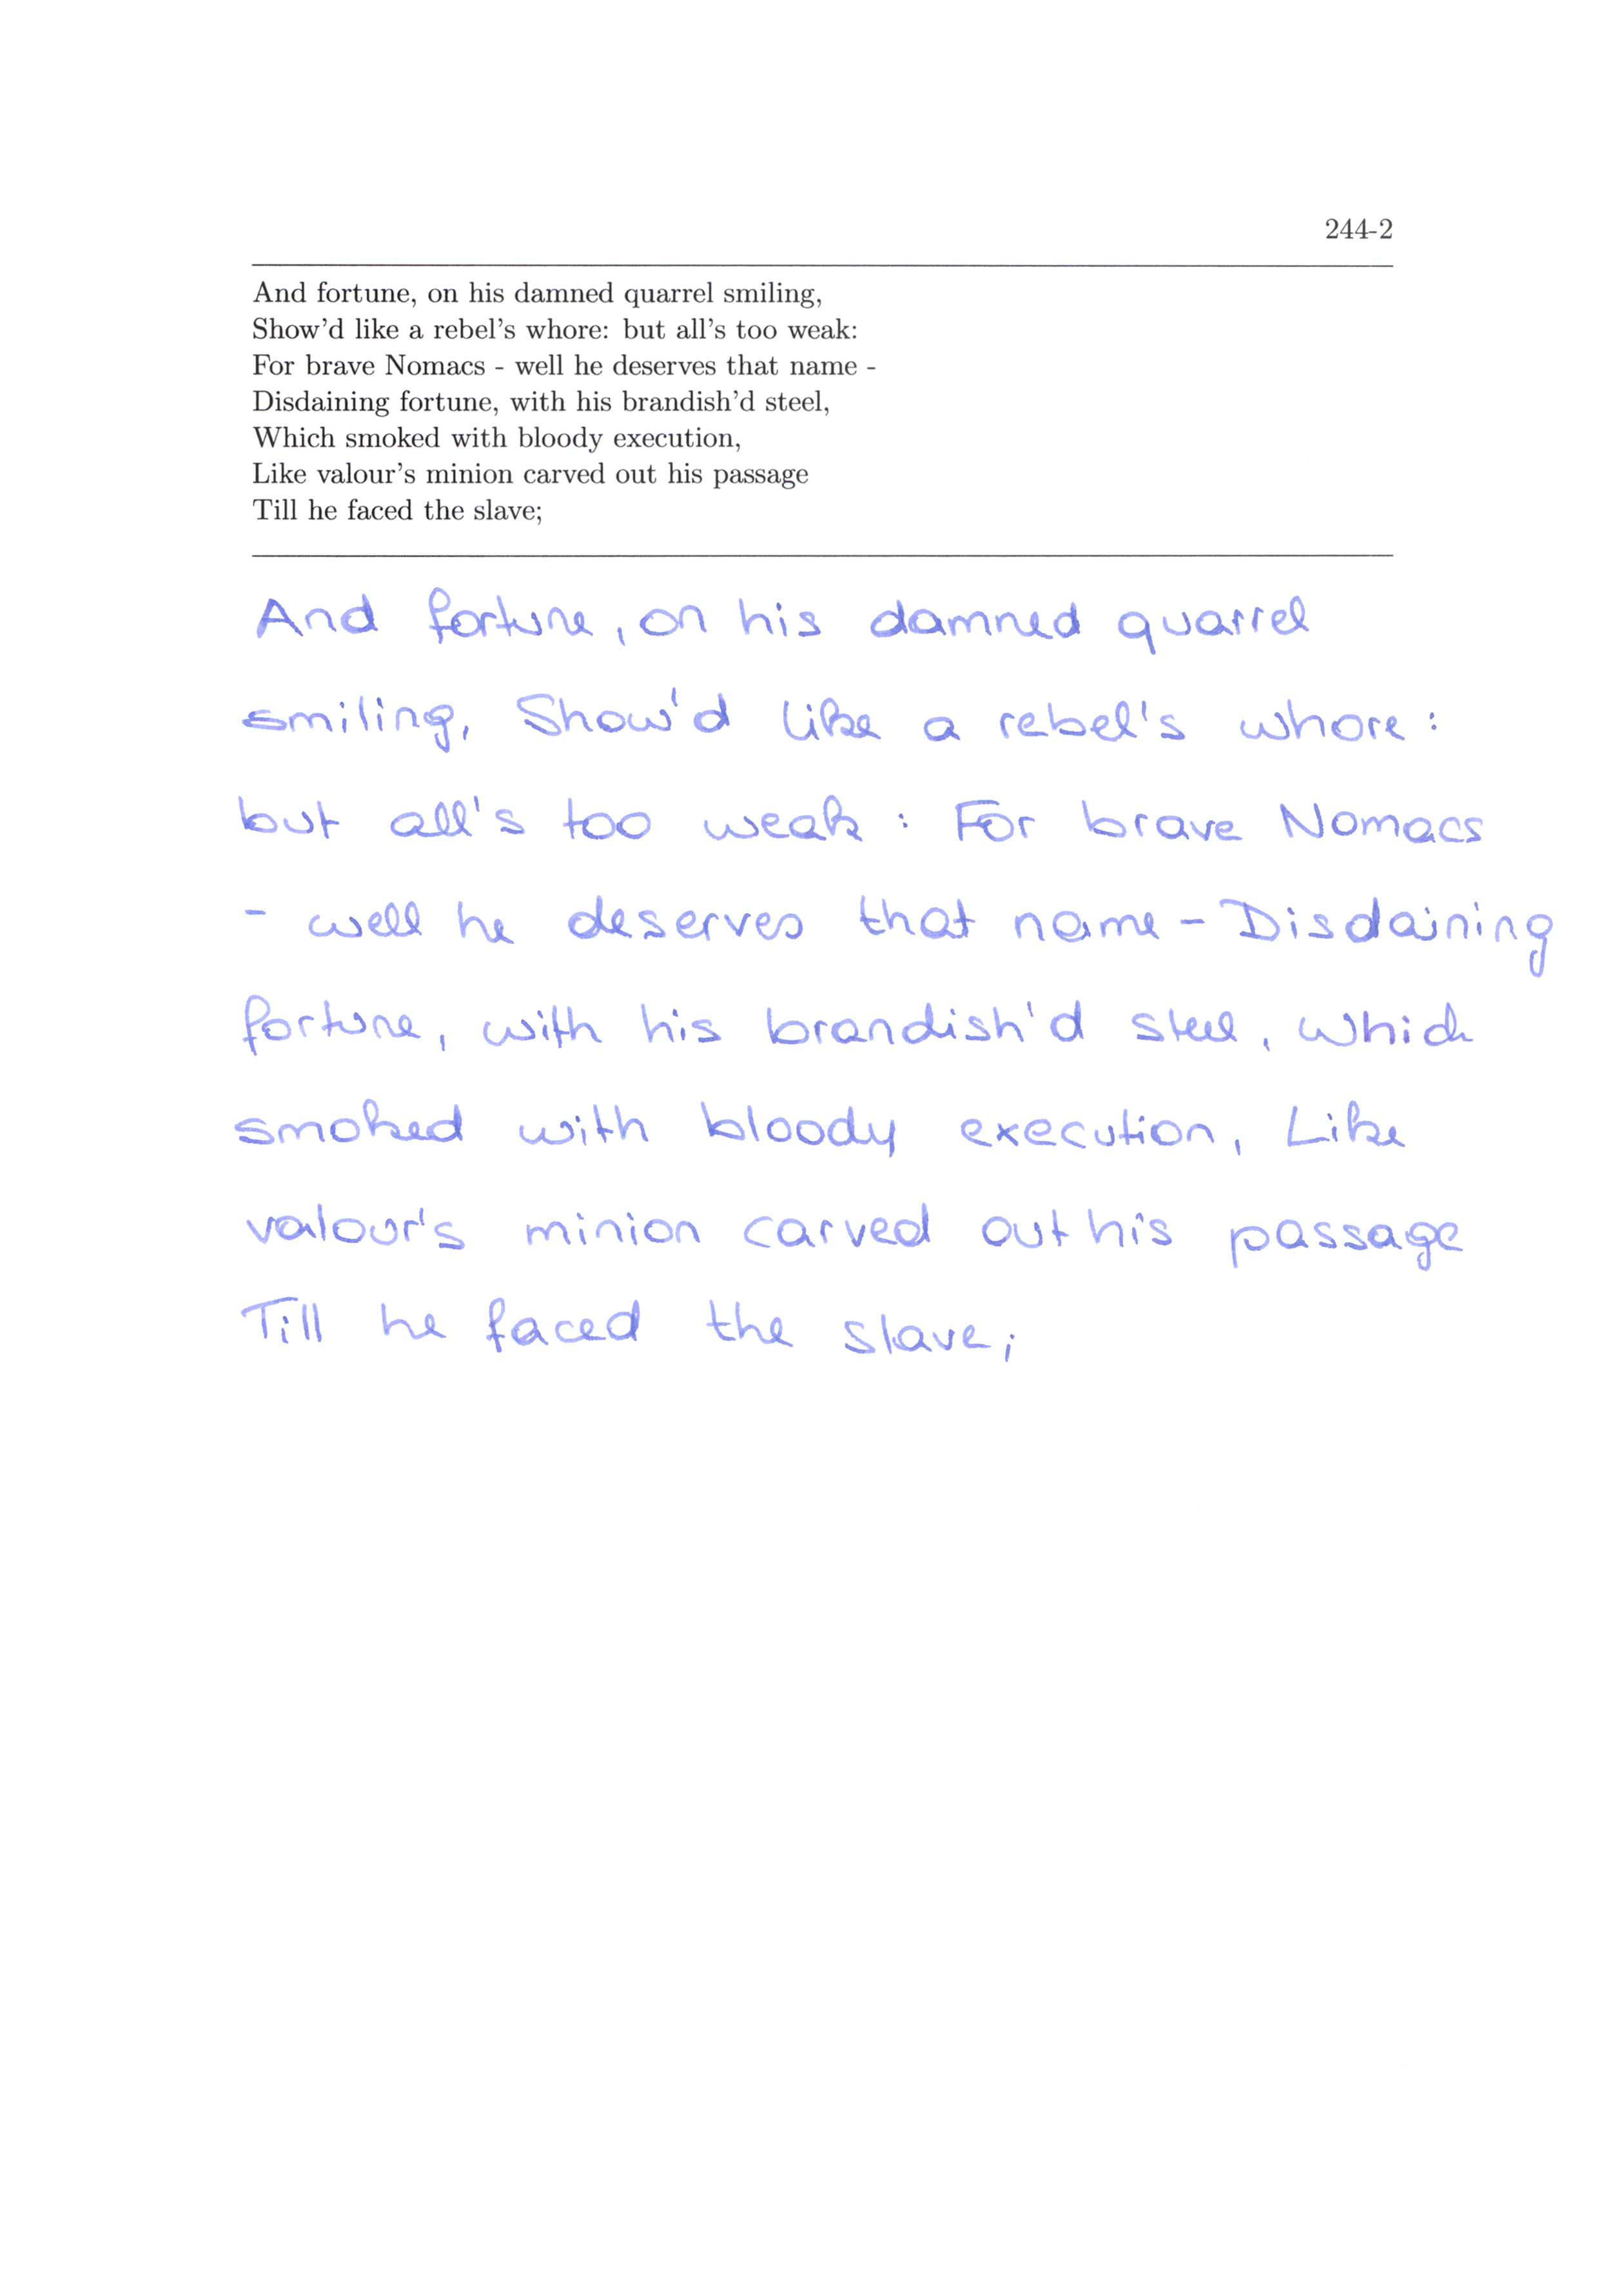 244-2
And fortune, on his damned quarrel smiling,
Show'd like a rebel's whore: but all's too weak:
For brave Nomacs - well he deserves that name -
Disdaining fortune, with his brandish'd steel,
Which smoked with bloody execution,
Like valour's minion carved out his passage
Till he faced the slave;
And fortune, on his damned quarrel
smiling, Show'd like a rebel's whore:
but all's too weak: For brave Nomacs
- well he deserves that name - Disdaining
fortune, with his brandish'd steel, Which
smoked with bloody execution, Like
valour's minion carved out his passage
Till he faced the slave;